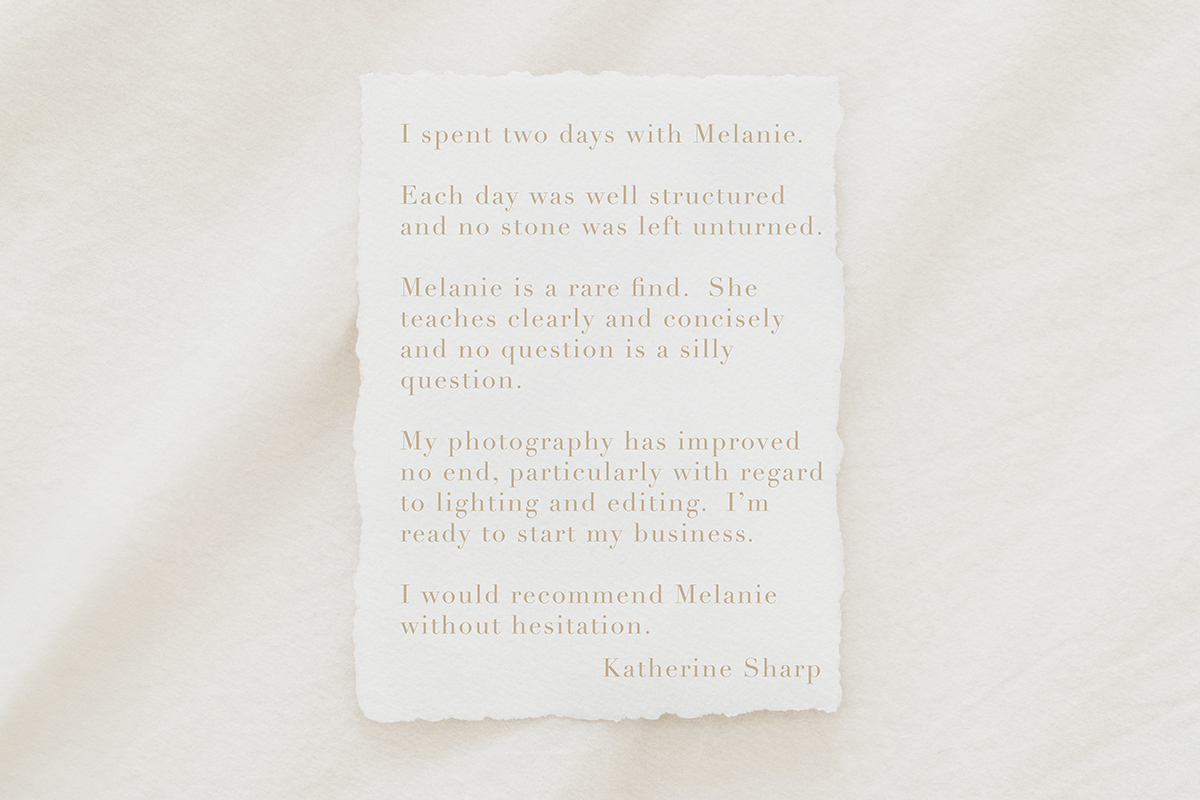 I spent two days with Melanie.
Each day was well structured
and no stone was left unturned.
Melanie is a rare find.  She
teaches clearly and concisely
and no question is a silly
question.
My photography has improved
no end, particularly with regard
to lighting and editing.  I’m
ready to start my business.
I would recommend Melanie
without hesitation.
Katherine Sharp